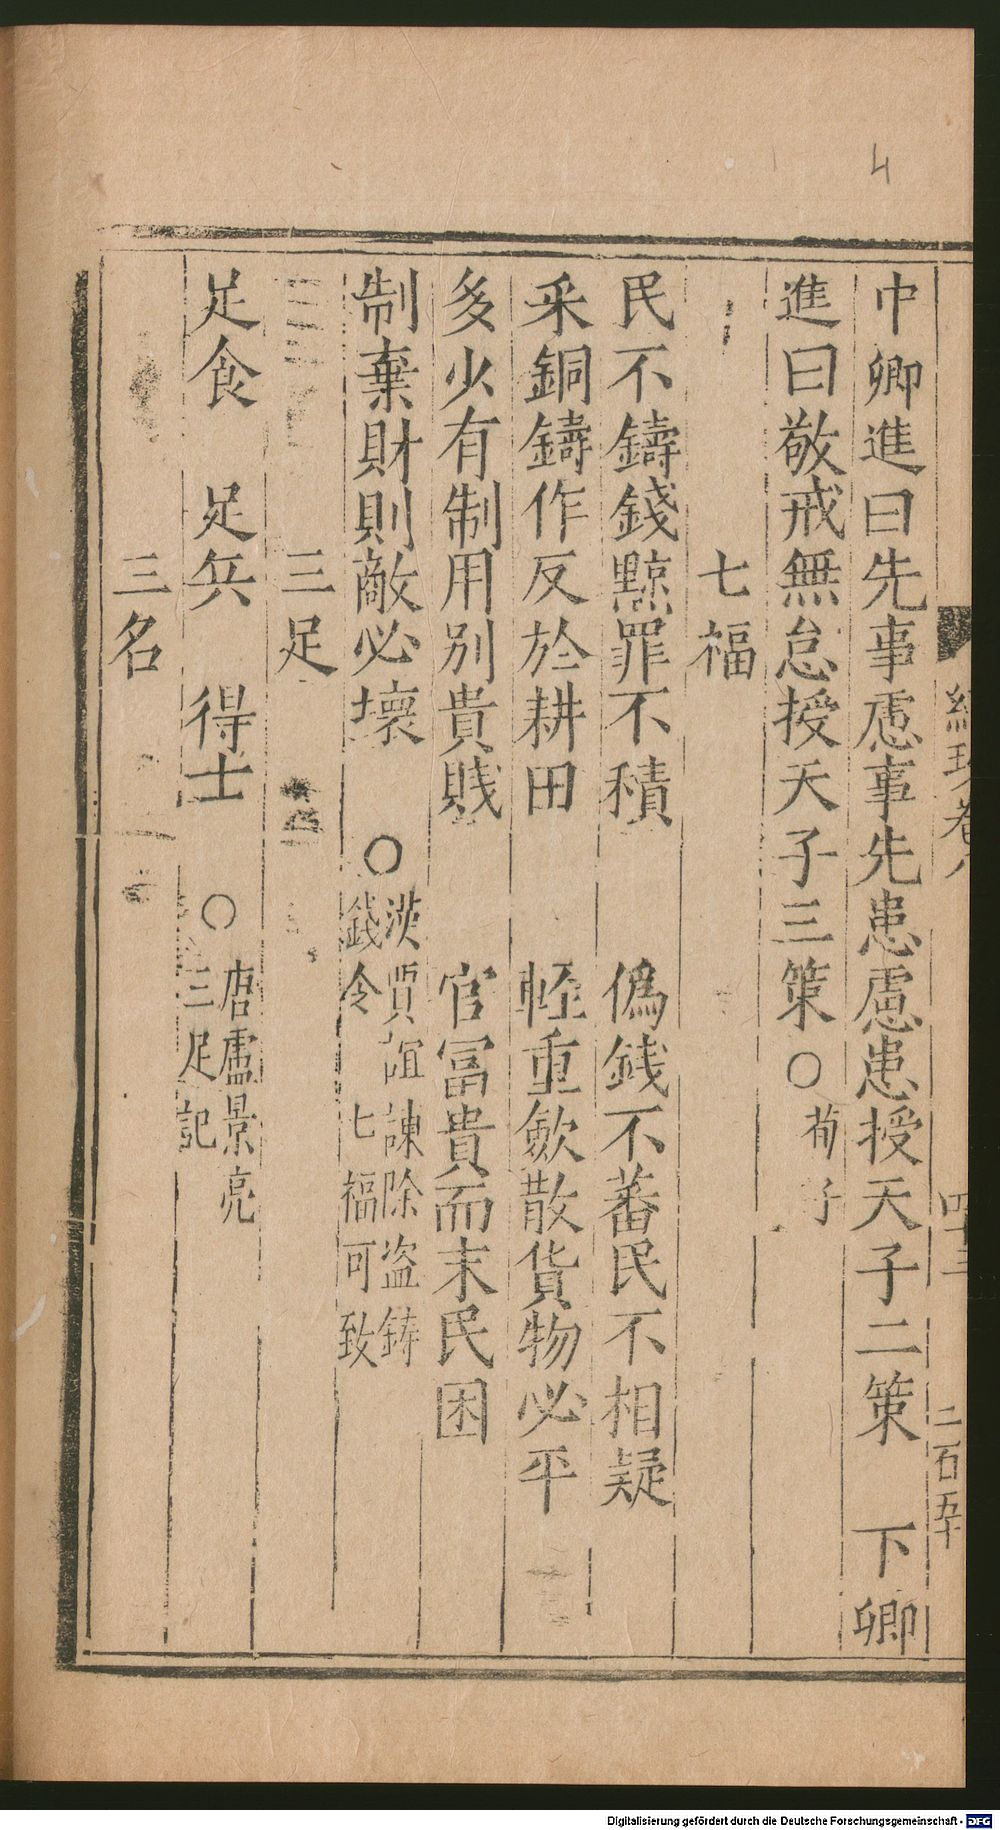 4
中卿進曰先事慮事先患慮患授天子二策 下卿
進曰敬戒無怠授天子三策○荀子
七福
民不鑄錢黥罪不積 偽錢不蕃民不相疑
采銅鑄作反於耕田 輕重歛散貨物必平
多少有制用別貴賤 官冨貴而末民困
制棄財則敵必壞 ○漢賈誼諫除盗鋳
錢令 七福可致
三足
足食 足兵 得士 ○唐盧景亮
三足記
三名
卷八
四十三
二百五十
Digitalisierung gefördert durch die Deutsche Forschungsgemeinschaft - DFG